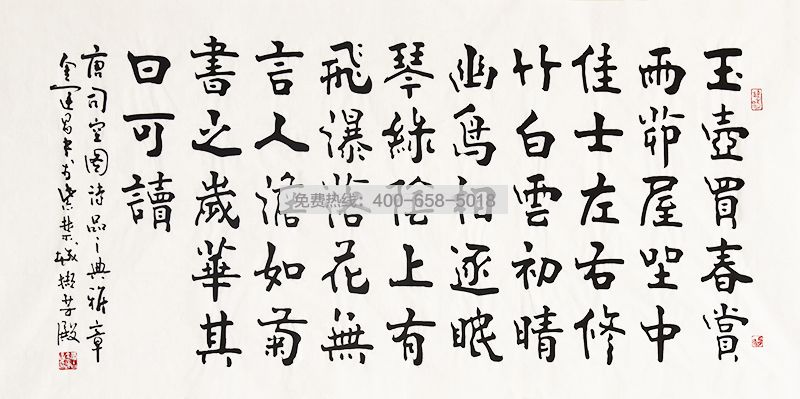 玉壺買春賞
雨茆屋坐中
佳士左右修
竹白雲初晴
幽鳥相逐眠
琴綠陰上有
飛瀑落花無
言人澹如菊
書之歲華其
曰可讀
唐司空图诗品之典雅章
金运昌书於紫禁城撷芳殿
免费热线：400-658-5018